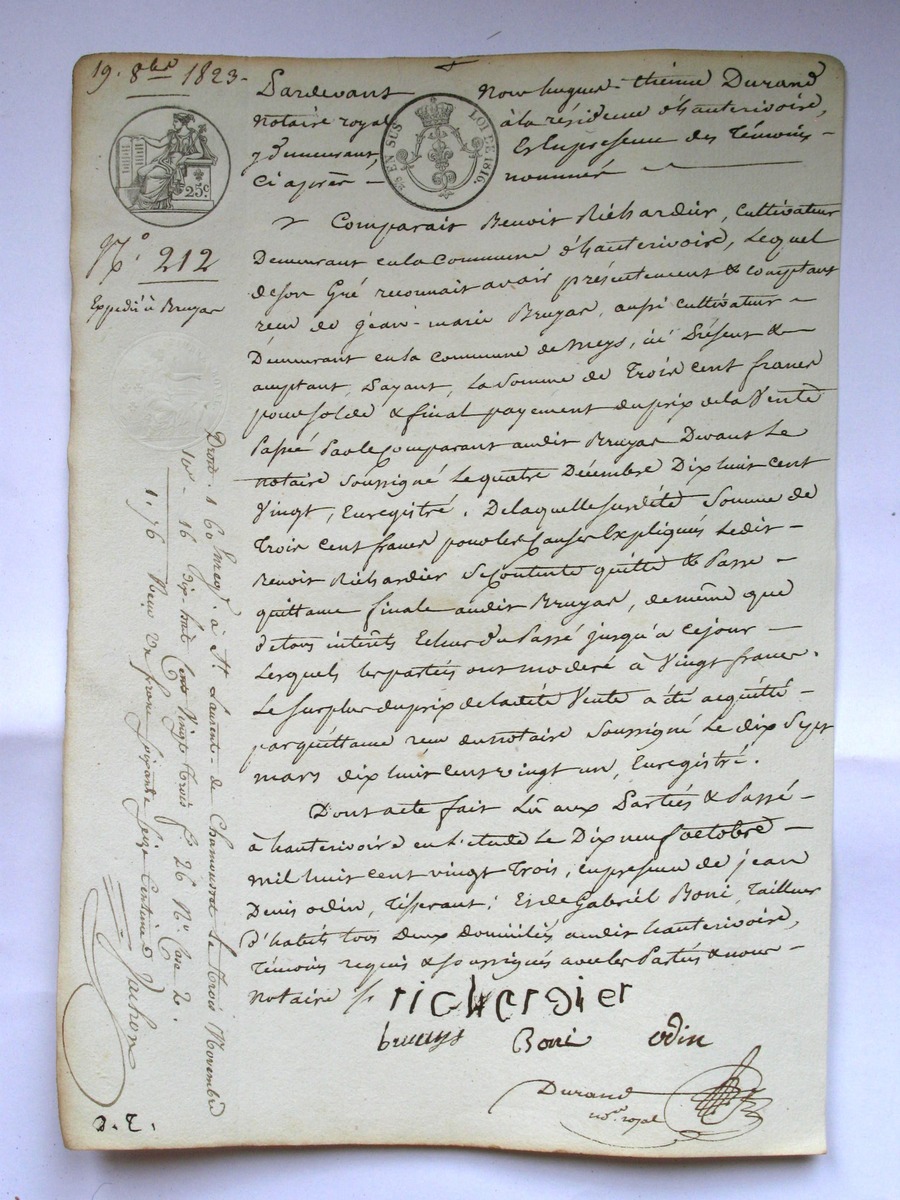 19. 8bre 1823-
Pardevant Nous hugues-etienne Durand
notaire royal à la résidence d'hauterivoire,
y demeurant, Et En presence des Témoins -
Ci après - nommés
EN SUS LOI DE 1816.
25c.
N.o 212
Expedié à Bruyas
Comparait Benoit Richardier, Cultivateur
Demeurant en la Commune d'hauterivoire, Lequel
de son Gré reconnait avoir présentement & comptant
reçu de jean-marie Bruyas, aussi cultivateur
Demeurant en la Commune de meys, ici Présent &
acceptant, payant, La Somme de Trois cent francs
pour solde & final payement du prix de la Vente
Passée Par le Comparant audit Bruyas Devant Le
notaire soussigné Le quatre Décembre Dix huit cent
Vingt, Enregistré. De laquelle susdite Somme de
Trois cent francs pour les Causes Expliqués Ledit -
Benoit Richardier Se Contente quitte & Passe -
quittance finale audit Bruyas, de même que
de tous intérêts Echus du Passé jusqu'à ce jour -
Lesquels les parties ont modéré à Vingt francs.
Le surplus du prix de la dite Vente a été acquitté -
par quittance reçu du notaire Soussigné Le dix Sept
mars dix huit cent vingt un, Enregistré.
Dont acte fait Lû aux Parties & Passé -
à hauterivoire en l'étude Le Dix neuf octobre -
mil huit cent vingt Trois, En presence de jean
Denis odin, Tisserant, Et de Gabriël Boni, Tailleur
d'habits tous Deux domiciliés audit hauterivoire,
Témoins requis & soussignés avec les Parties & nous -
notaire
richardier
bruyas Boni odin
Durand
nore royal
Droit. 1 60 Enreg.é à St. Laurent-de Chamousset Le trois Novembre
10e - 16 Dix-huit Cent Vingt trois f.o 26 R.o Case 2.
1. 76 Reçu un franc soixante seize Centimes